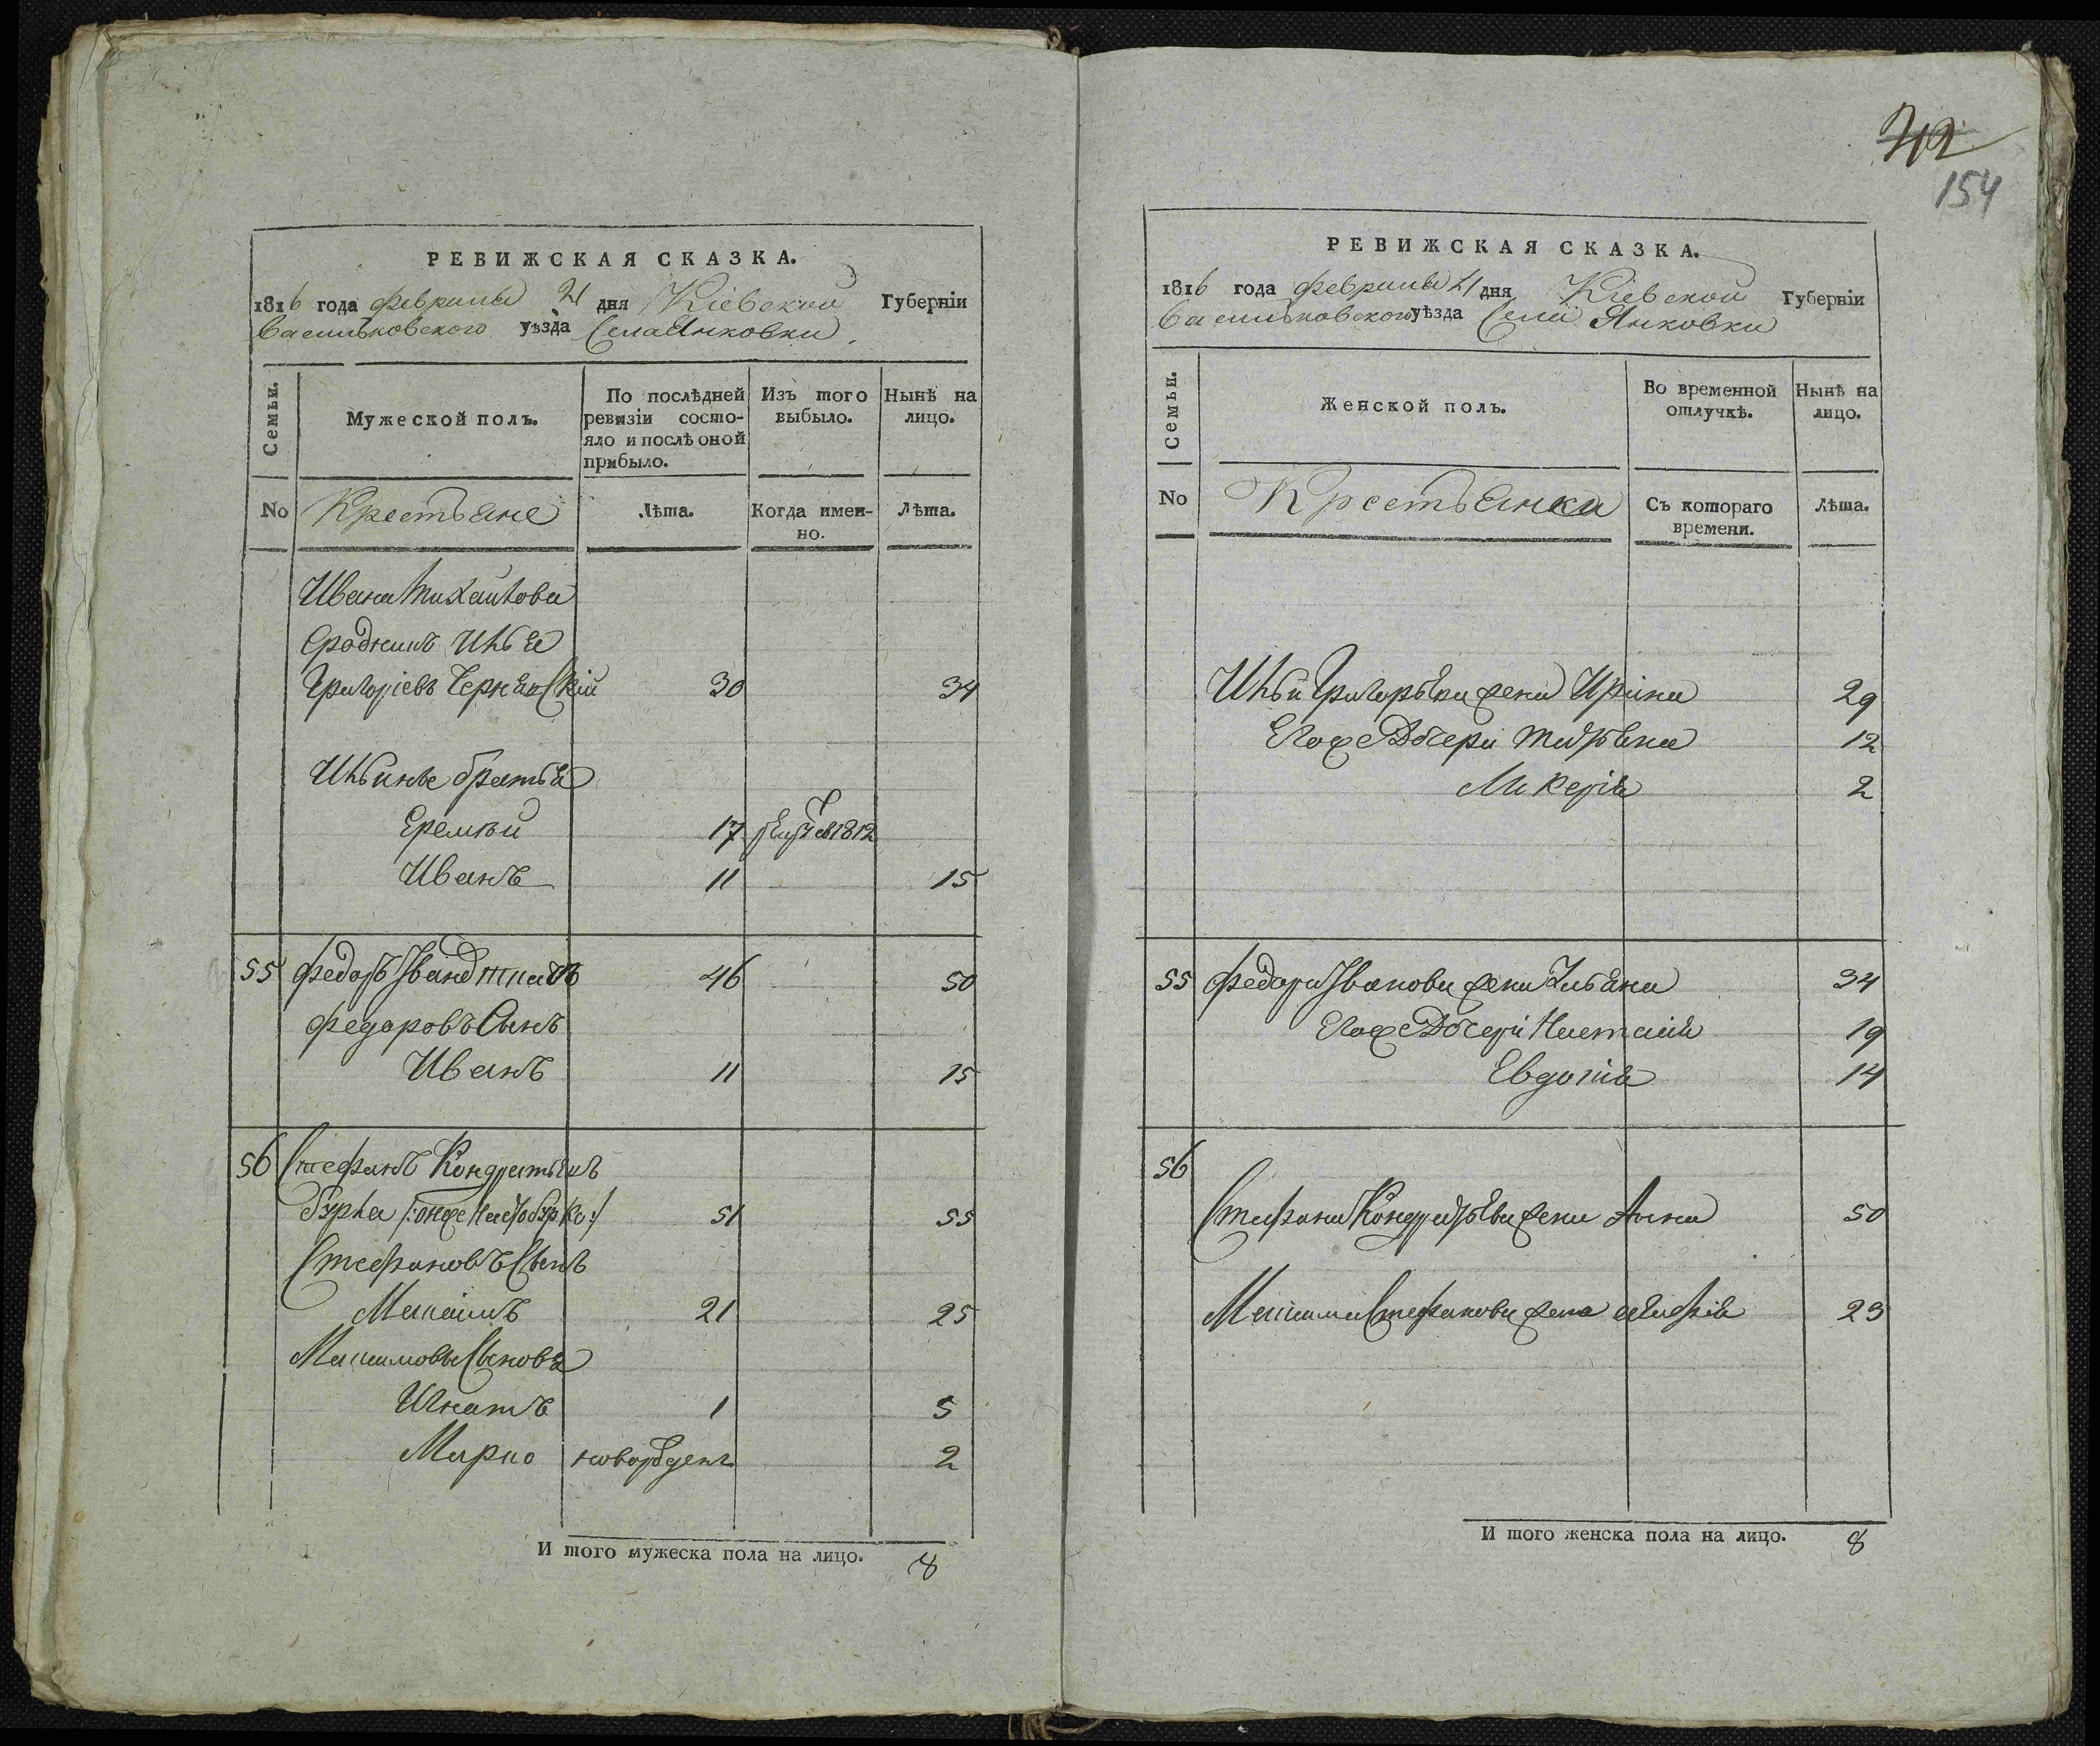 РЕВИЖСКАЯ СКАЗКА.
1816 года февраля 21 дня Кіевской Губерніи
Васильковского уѣзда Села Янковки
Семьи.
Мужеской полъ.
По послѣдней ревизіи состояло и послѣ оной прибыло.
Изъ того выбыло.
Нынѣ на лицо.
No Крестьяне Лѣта. Когда именно. Лѣта.
Ивана Михайлова
Сродникъ Илья
Григоріевъ 30 34
Ильины братья
Еремѣй 17 1812
Иванъ 11 15
55 Федоръ Иванов 46 50
Федоровъ Сынъ
Иванъ 11 15
56 Стефанъ Кондратьевъ
Бурла 51 55
Стефановъ Сынъ
Максімъ 21 25
Максимовы Сыновья
Игнатъ 1 5
Марко новорожден 2
И того мужеска пола на лицо. 8
42
154
РЕВИЖСКАЯ СКАЗКА.
1816 года февраля 21 дня Кіевской Губерніи
Васильковского уѣзда Села Янковки
Семьи.
Женской полъ.
Во временной отлучкѣ.
Нынѣ на лицо.
No Крестьянки Съ котораго времени. Лѣта.
Ильи Григорьева жена Ирина 29
Егоже Дочери Татьяна 12
Ликерія 2
55 Федора Иванова жена Ульяна 34
Егоже Дочери Настасія 19
Евдокія 14
56
Стефана Кондратьева жена Анна 50
Максима Стефанова жена 23
И того женска пола на лицо. 8